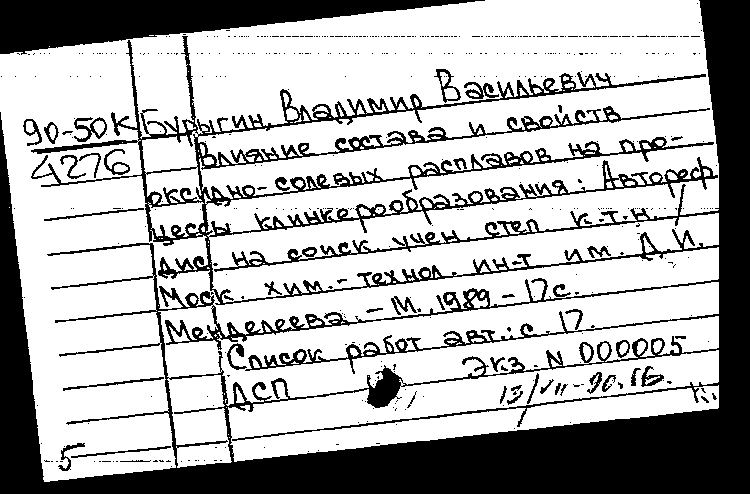 90-50К Бурыгин, Владимир Васильевич
4276 Влияние состава и свойств
оксидно-солевых расплавов на про-
цессы клинкерообразования: Автореф
дис. на соиск. учен. степ. к.т.н. /
Моск. хим.-технол. ин-т им. Д.И.
Менделеева. - М., 1989. - 17с.
Список работ авт.: с. 17.
ДСП Экз. N 000005
13/VII-90.
К.
5